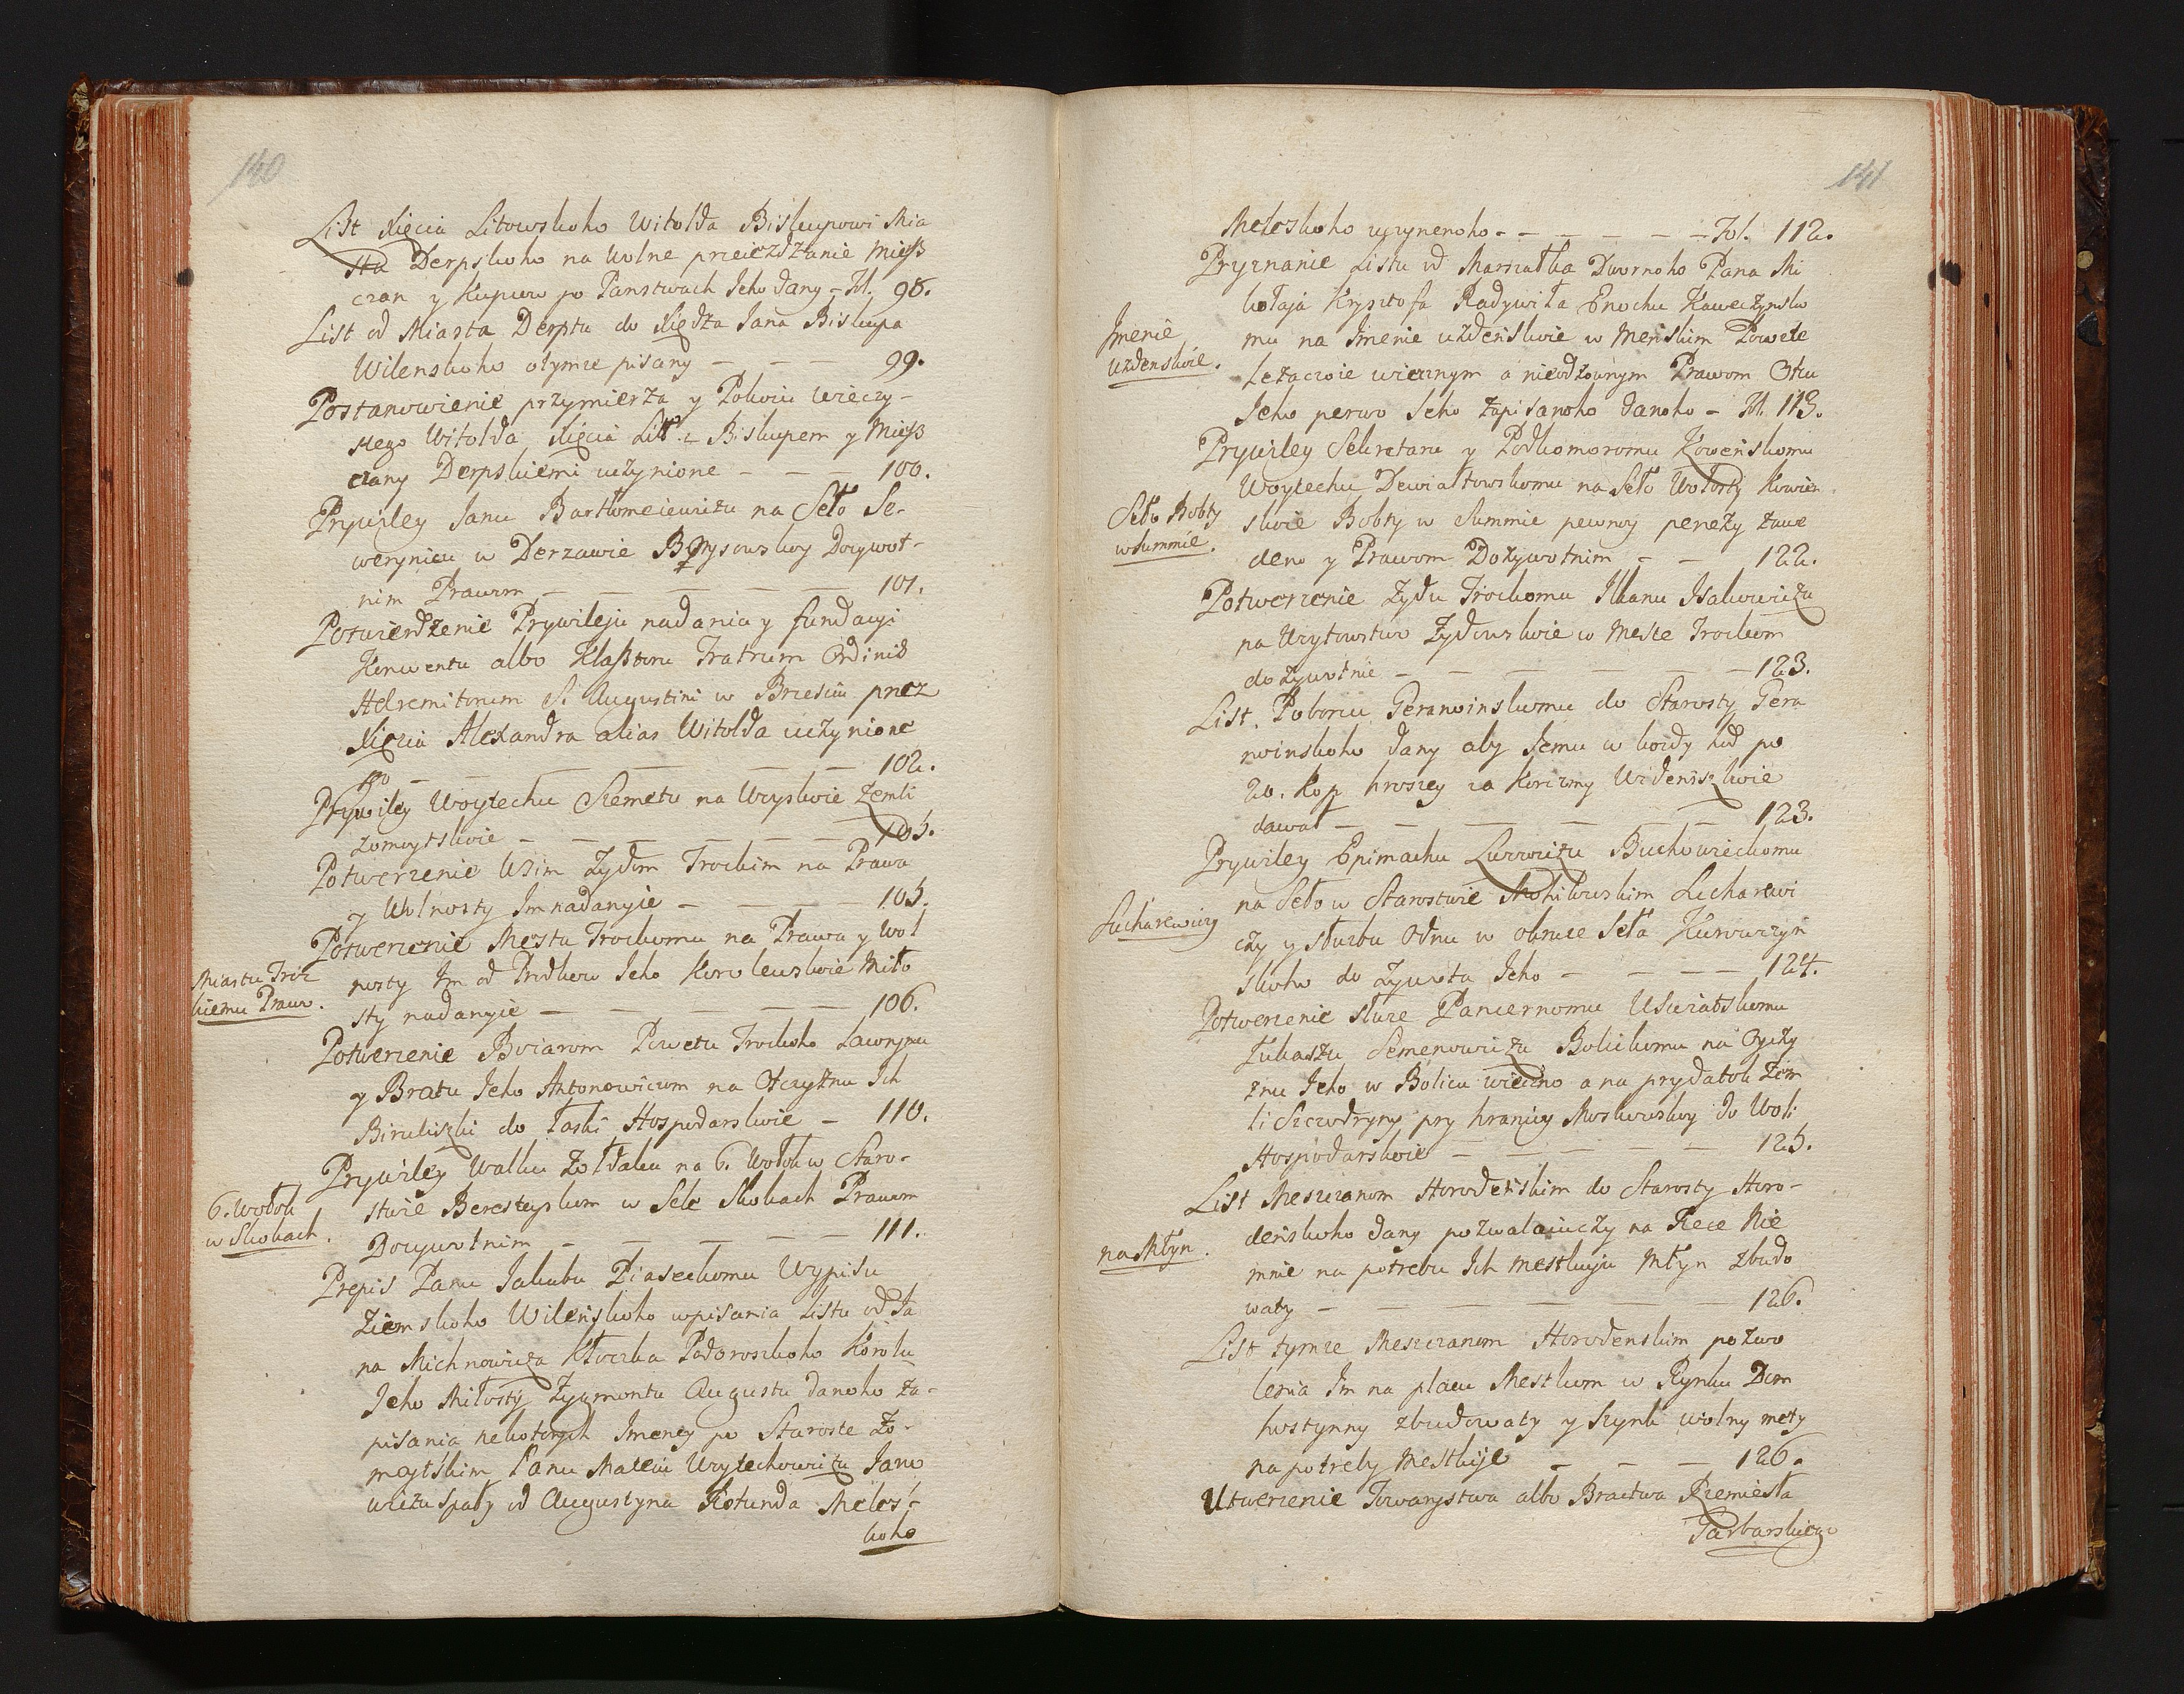 140
List Xięcia Litowskoho Witolda Biskupowi Mia
sta Derpskoho na Wolne przeiezdżanie Mieß
czan y Kupcow po Panstwach Jeho dany - Fol. 98.
List od Miasta Derptu do Xiędza Jana Biskupa
Wilenskoho otymże pisany - - - 99.
Postanowienie przymierza y Pokoiu wieczy-
stego Witolda Xięcia Litt. z Biskupem y Mieß
czany Derpskiemi uczynione - - - 100.
Prywiley Janu Bartłomeiewiczu na Seło Se-
werynicu w Derzawie Borysowskoy Dożywot-
nim Prawom - - - - - 101.
Potwierdzenie Prywileju nadania y fundacyi
Konwentu albo Klaßtoru Fratrum Ordinis
Heremitorum S. Augustini w Brzesciu przez
Xięcia Alexandra alias Witolda uczynione
go - - - - - - 102.
Prywiley Woytechu Szemetu na Woyskoie Zemli
Zomoytskoie - - - - - 105.
Potwerżenie Wsim Żydom Trockim na Prawa
y Wolnosty Im nadanyie - - - 105.
Potwerżenie Mestu Trockomu na Prawa y Wol
Miastu Troc
kiemu Praw.
nosty Im od Prodkow Jeho Korolewskoie Miło
sty nadanyie - - - - - 106.
Potwerżenie Boiarom Powetu Trockoho Ławrynu
y Bratu Jeho Antonowiczom na Otczyznu Ich
Biruliszki do łaski Hospodarskoie - 110.
Prywiley Walku Żołdaku na 6. Wołok w Staro-
6. Wołok
w Skokach.
stwie Beresteyskom w Sele Skokach Prawom
Dożywotnim - - - - - 111.
Prepis Panu Jakubu Piaseckomu Wypisu
Ziemskoho Wileńskoho wpisania Listu od Ja
na Michnowicza Kłoczka Podoroszkoho Korolu
Jeho Miłosty Zygmontu Augustu danoho za-
pisania nekotorych Imeney po Staroste Żo-
moytskim Panu Mateiu Woytechowiczu Jano
wiczu spały od Augustyna Rotunda Meles-
koho
141
Meleskoho uczynenoho - - - - - - Fol. 112.
Pryznanie Listu od Marszałka Dwornoho Pana Mi
kołaja Krysztofa Radywiła Enochu Kaweczynsko
Jmenie
Uzdenskoie.
mu na Imenie Uzdeńskoie w Menskim Powete
Leżaczoie wiecznym a nieodzownym Prawom Otcu
Jeho perwo seho zapisanoho danoho - Fol. 113.
Prywiley Sekretaru y Podkomoromu Kowenskomu
Woytechu Dewiałtowskomu na Seło Wołosty Kowien
Seło Bobty
w Summie.
skoie Bobty w Summie pewnoy penezy zawe
deno y Prawom Dożywotnim - - 122.
Potwerżenie Żydu Trockomu Ilkanu Isakowiczu
na Woytowstwo Żydowskoie w Meste Trockom
do żywotnie - - - - - 123.
List. Poborcu Geranoinskomu do Starosty Gera
noinskoho dany aby Jemu w kozdy hod po
20. Kop hroszey za Korczmy Widenszkoie
dawał - - - - - - 123.
Prywiley Epimachu Lwowiczu Buchowieckomu
na Seło w Starostwie Mohilewskim Sucharewi
Sucharewiczy
czy y słuzbu odnu w obrusze Seła Kurowczyn
skoho do Żywota Jeho - - - - 124.
Potwerżenie słuze Pancernomu Uswiatskomu
Łukaszu Semenowiczu Bolickomu na Oyczy
znu Jeho w Bolicu wieczno a na prydatok Zem
li Szczodryny pry hranicy Moskowskoy do Woli
Hospodarskoie - - - - - 125.
List Meszczanom Horodeńskim do Starosty Horo-
deńskoho dany pozwalaiuczy na Rece Nie
na Młyn.
mnie na potrebu Ich mestkuju Młyn zbudo
waty - - - - - - 126.
List tymze Meszczanom Horodenskim pozwo
lenia Im na placu Mestkom w Rynku Dom
hostynny zbudowaty y szynk wolny mety
na potreby mestkije - - - 126.
Utwerżenie Towarystwa albo Bractwa Rzemiesła
Garbarskiego